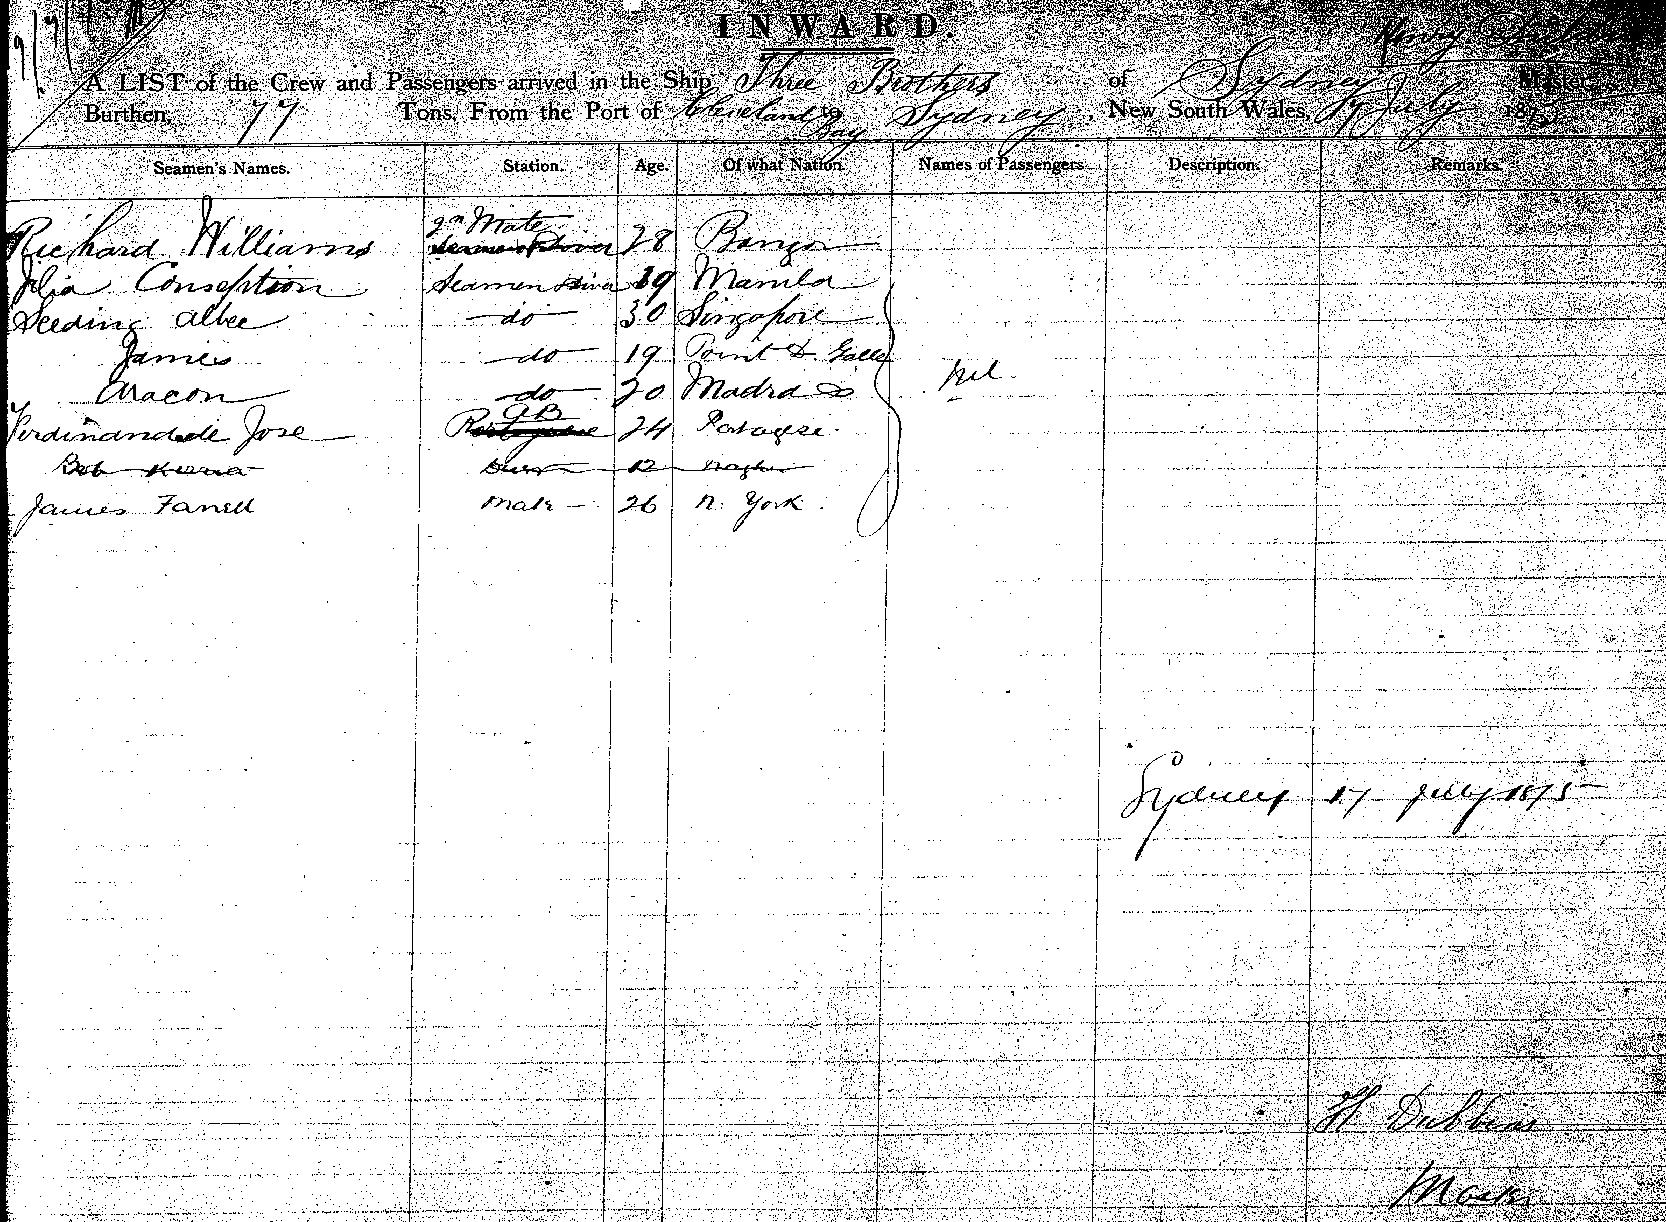 INWARD.
A LIST of the Crew and Passengers arrived in the Ship Three Brothers of Sydney Henry
Burthen, 77 Tons, From the Port of Cleveland Bay to Sydney, New South Wales, 17 July 1875
Seamen's Names. Station. Age. Of what Nation. Names of Passengers. Description. Remarks.
Richard Williams 2n Mate 28 Bangor
Julia Conseption Seamen Diver 19 Manila
Seeding Albee do 30 Singapore
James do 19 Point D. Galle
Aracon do 20 Madras Nil
Ferdinand de Jose AB 24 Portugese
Bob 12
James Farrell Mate 26 N. York
Sydney 17 July 1875
H Dubbins
Master